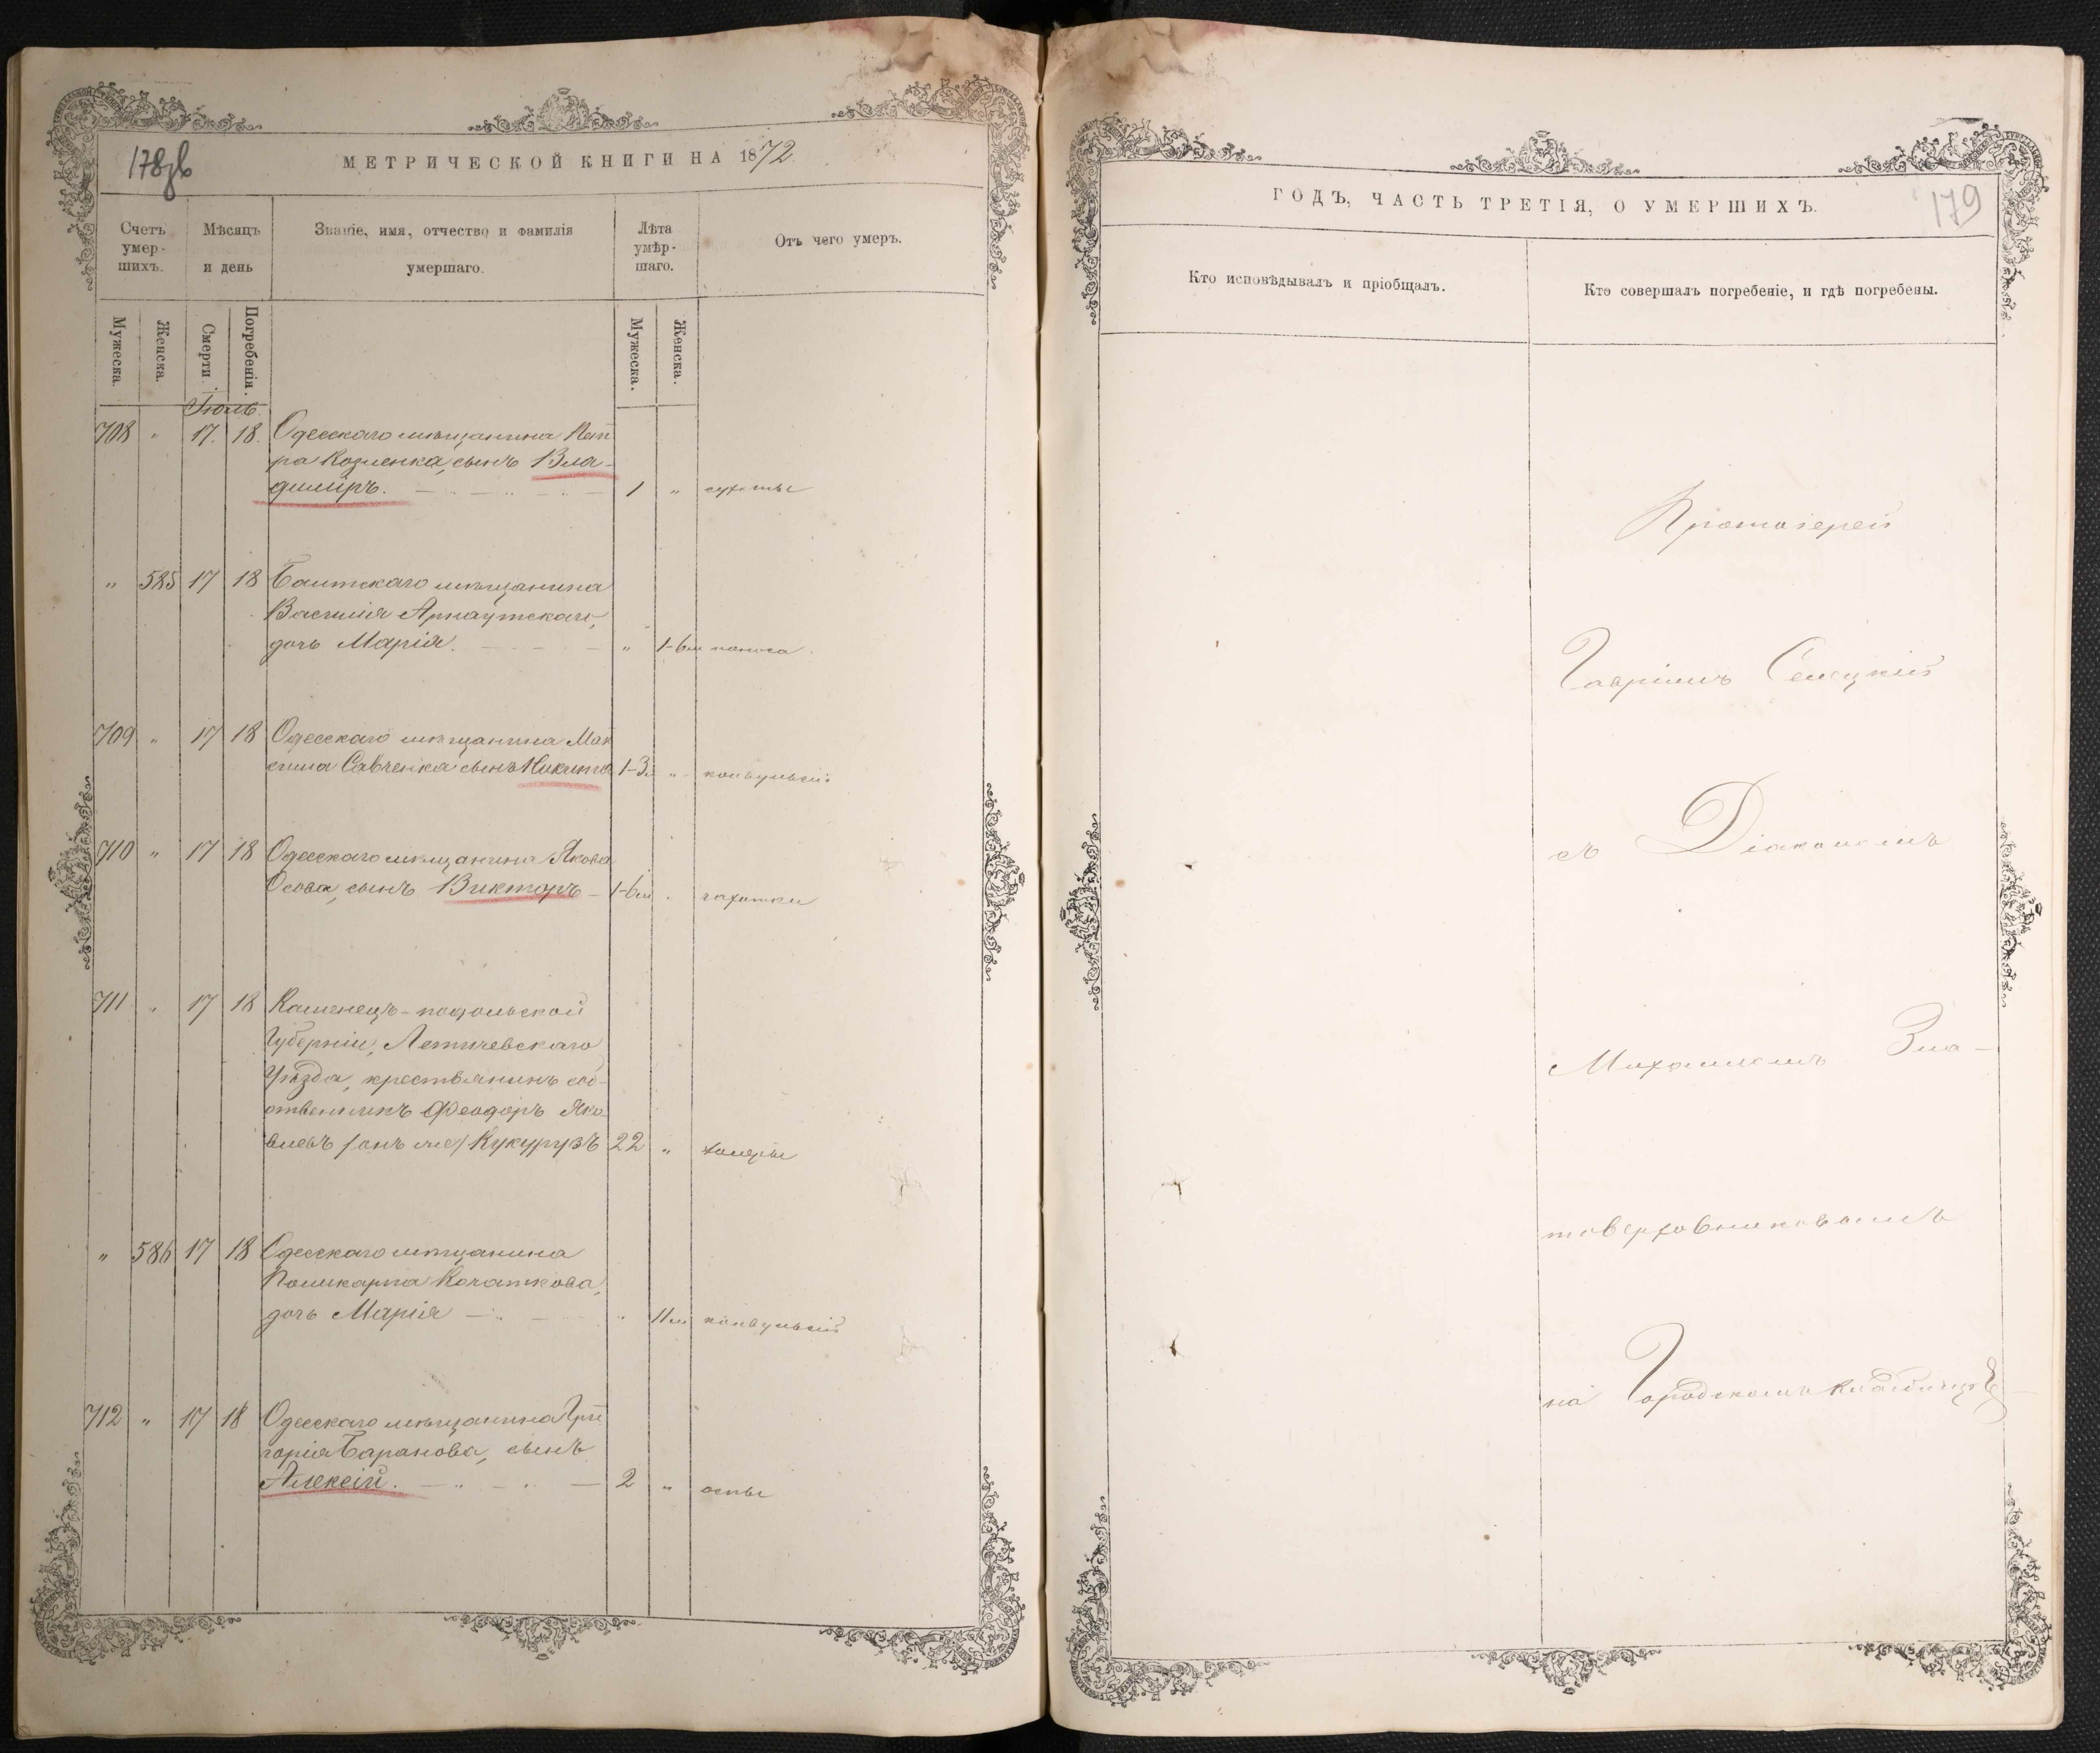 178зв
МЕТРИЧЕСКОЙ КНИГИ НА 1872
Счетъ умер-шихъ.
Мѣсяцъ и день
Званіе, имя, отчество и фамилія умершаго.
Лѣта умѣр-шаго.
Отъ чего умеръ.
Мужеска.
Женска.
Смерти.
Погребенія.
Мужеска.
Женска.
Іюль.
708 " 17. 18. Одесскаго мѣщанина Пет
ра Козленка, сынъ Вла-
диміръ. 1 " сухоты
" 585 17 18 Балтскаго мѣщанина
Василія Арнаутскаго,
дочь Марія. " 1-6м поноса
709 " 17 18 Одесскаго мѣщанина Мак
сима Савченка сынъ Никита 1-3м " конвульсій
710 " 17 18 Одесскаго мѣщанина Якова
Осова, сынъ Викторъ 1-6м чахотки
711 " 17 18 Каменецъ-подольской
Губерніи, Летичевскаго
Уѣзда, крестьянинъ соб-
ственникъ Феодоръ Яко-
влевъ (онъ же) Кукурузъ 22 " холеры
" 586 17 18 Одесскаго мѣщанина
Поликарпа Кочаткова,
дочь Марія " 11м конвульсій
712 " 17 18 Одесскаго мѣщанина Гри
горія Баранова, сынъ
Алексій. 2 " оспы
179
ГОДЪ, ЧАСТЬ ТРЕТІЯ, О УМЕРШИХЪ.
Кто исповѣдывалъ и пріобщалъ.
Кто совершалъ погребеніе, и гдѣ погребены.
Протоіерей
Гавріилъ Селецкій
съ Діакономъ
Михаиломъ Зла-
товерховниковымъ
на Городскомъ Кладбищѣ